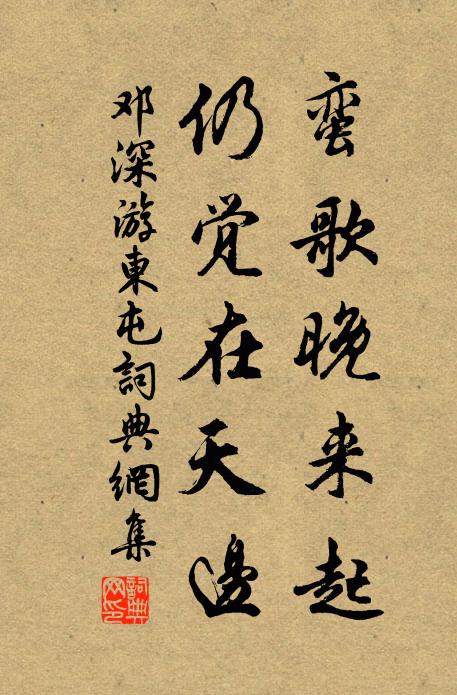 蛮歌晚来起
仍觉在天邊
邓深游東屯詞典網集
詞典网印